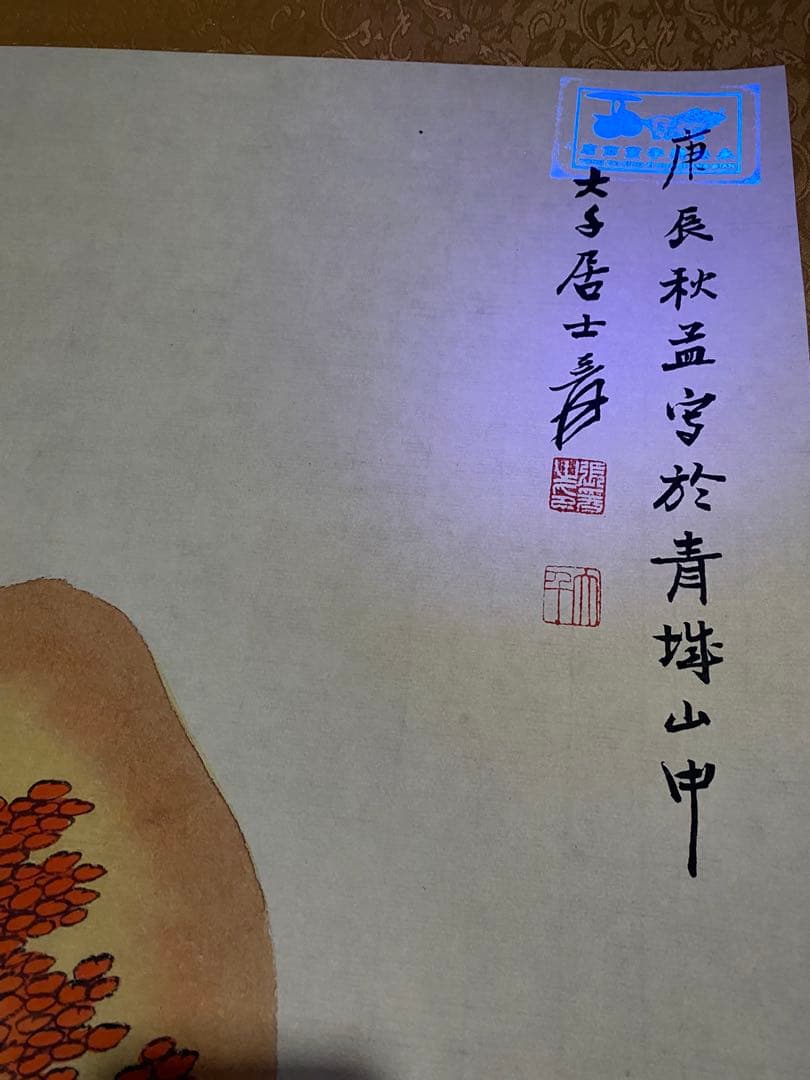 庚辰秋孟写於青城山中
大千居士爰
大千